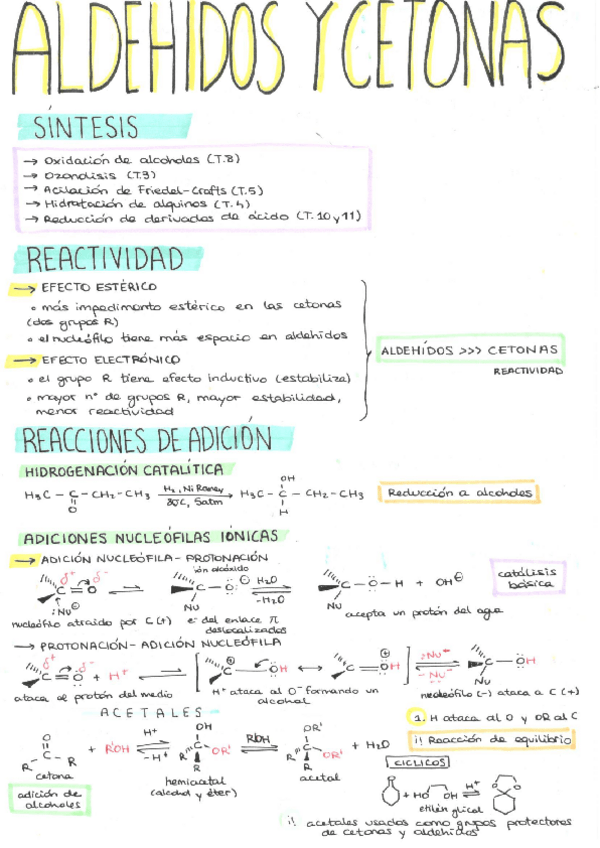 ALDEHIDOS Y CETONAS
SÍNTESIS
→ Oxidación de alcoholes (T.8)
→ Ozonólisis (T.3)
→ Acilación de Friedel-Crafts (T.5)
→ Hidratación de alquinos (T.4)
→ Reducción de derivados de ácido (T.10 y 11)
REACTIVIDAD
→ EFECTO ESTÉRICO
• más impedimento estérico en las cetonas
(dos grupos R)
• el nucleófilo tiene más espacio en aldehidos
→ EFECTO ELECTRÓNICO
• el grupo R tiene efecto inductivo (estabiliza)
• mayor nº de grupos R, mayor estabilidad,
menor reactividad
ALDEHÍDOS >>> CETONAS
REACTIVIDAD
REACCIONES DE ADICIÓN
HIDROGENACIÓN CATALÍTICA
H₃C – C – CH₂ – CH₃ H₂, Ni Raney → H₃C – C – CH₂ – CH₃
O 80ºC, 5atm OH H
Reducción a alcoholes
ADICIONES NUCLEÓFILAS IÓNICAS
→ ADICIÓN NUCLEÓFILA - PROTONACIÓN
ión alcóxido
δ+ δ- C = O ⇌ C – O ⊖ H₂O ⇌ -H₂O C – O – H + OH⊖
:Nu⊖ Nu Nu
catálisis
básica
nucleófilo atraído por C (+)
e⁻ del enlace π
deslocalizados
acepta un protón del agua
→ PROTONACIÓN - ADICIÓN NUCLEÓFILA
δ+ δ- C = O + H⁺ ⇌ [ ⊕ C – OH ↔ C = OH ⊕ ] :Nu⁻ ⇌ -Nu⁻ C – OH
Nu
ataca el protón del medio
H⁺ ataca al O⁻ formando un
alcohol
nucleófilo (-) ataca a C (+)
ACETALES
1. H ataca al O y OR al C
¡! Reacción de equilibrio
O R C R + R'OH H⁺ ⇌ -H⁺ OH C OR' R R R'OH ⇌ OR' C OR' R R + H₂O
cetona
hemiacetal
(alcohol y éter)
acetal
adición de
alcoholes
CICLICOS
+ HO OH H⁺ ⇌ O O
etilén glicol
¡! acetales usados como grupos protectores
de cetonas y aldehidos